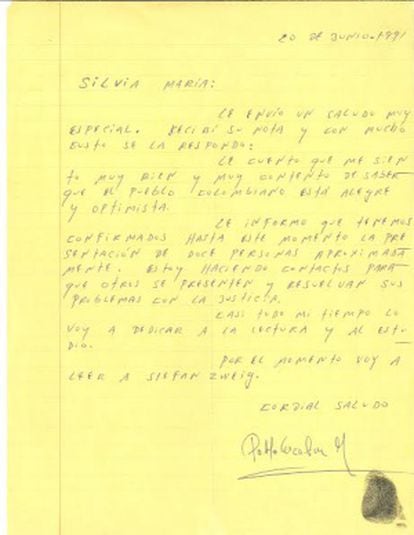 20 DE JUNIO-1991
SILVIA MARÍA:
LE ENVÍO UN SALUDO MUY
ESPECIAL. RECIBÍ SU NOTA Y CON MUCHO
GUSTO SE LA RESPONDO:
LE CUENTO QUE ME SIEN
TO MUY BIEN Y MUY CONTENTO DE SABER
QUE EL PUEBLO COLOMBIANO ESTÁ ALEGRE
Y OPTIMISTA.
LE INFORMO QUE TENEMOS
CONFIRMADOS HASTA ESTE MOMENTO LA PRE
SENTACIÓN DE DOCE PERSONAS APROXIMADA
MENTE. ESTOY HACIENDO CONTACTOS PARA
QUE OTROS SE PRESENTEN Y RESUELVAN SUS
PROBLEMAS CON LA JUSTICIA.
CASI TODO MI TIEMPO LO
VOY A DEDICAR A LA LECTURA Y AL ESTU
DIO.
POR EL MOMENTO VOY A
LEER A STEFAN ZWEIG.
CORDIAL SALUDO
Pablo Escobar G